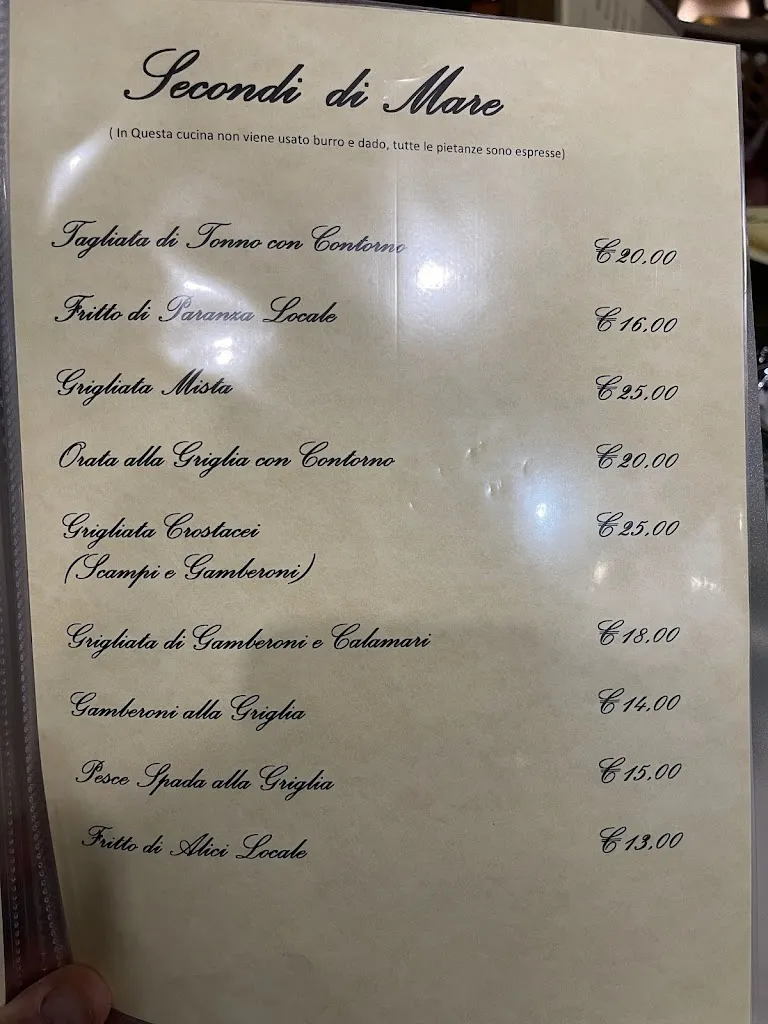 Secondi di Mare
( In Questa cucina non viene usato burro e dado, tutte le pietanze sono espresse)
Tagliata di Tonno con Contorno €20.00
Fritto di Paranza Locale €16.00
Grigliata Mista €25.00
Orata alla Griglia con Contorno €20.00
Grigliata Crostacei €25.00
(Scampi e Gamberoni)
Grigliata di Gamberoni e Calamari €18.00
Gamberoni alla Griglia €14.00
Pesce Spada alla Griglia €15.00
Fritto di Alici Locale €13.00